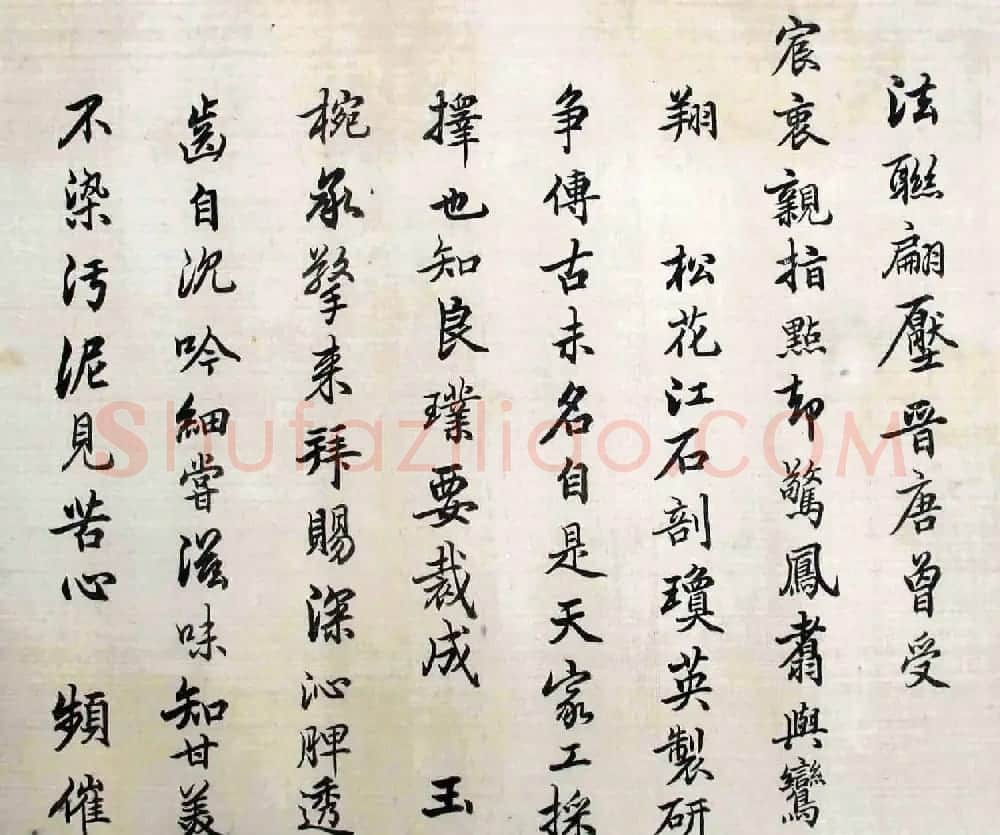 法聯翩壓晉唐曾受
宸衷親指點却驚鳳翥與鸞
翔 松花江石剖瓊英製研
争傳古未名自是天家工採
擇也知良璞要裁成 玉
椀承擎来拜賜深沁脾透
齒自沉吟細嘗滋味知甘美
不染污泥見苦心 頻催
Shufaziliao.COM